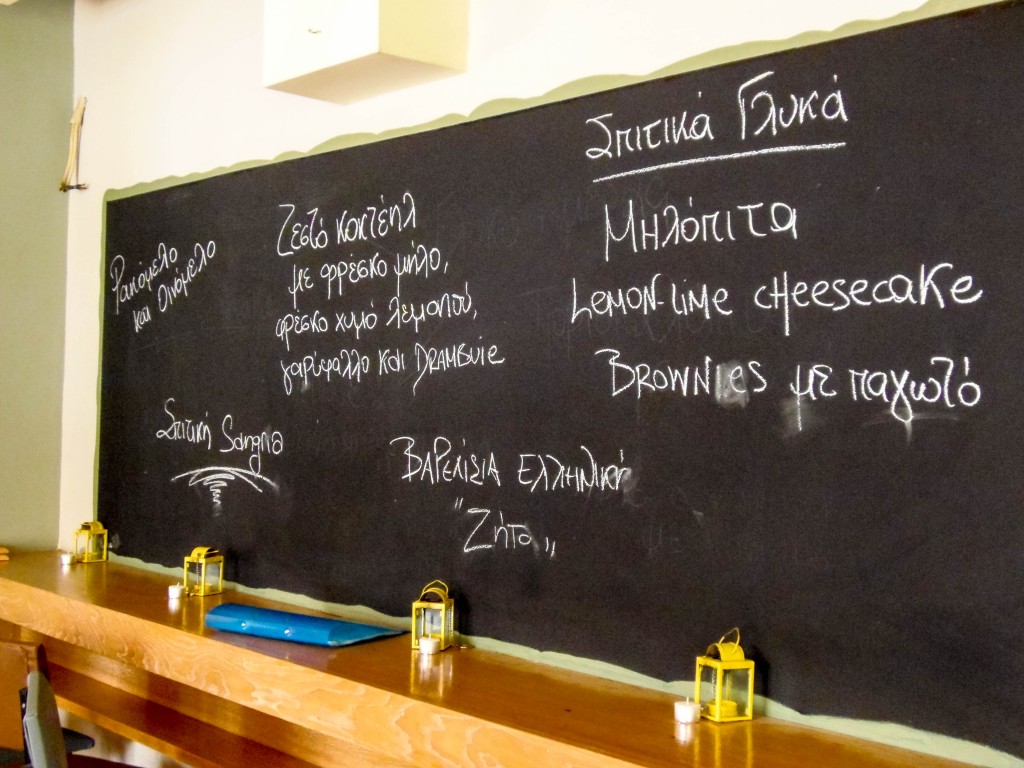 Ρακόμελο
και Οινόμελο
Ζεστό κοκτέηλ
με φρέσκο μήλο,
φρέσκο χυμό λεμονιού,
γαρύφαλλο και DRAMBUIE
Σπιτική Sangria
ΒΑΡΕΛΙΣΙΑ ΕΛΛΗΝΙΚή
"Ζήτα„
Σπιτικά Γλυκά
Μηλόπιτα
LEMON-LIME CHEESECAKE
BROWNIES με παγωτό